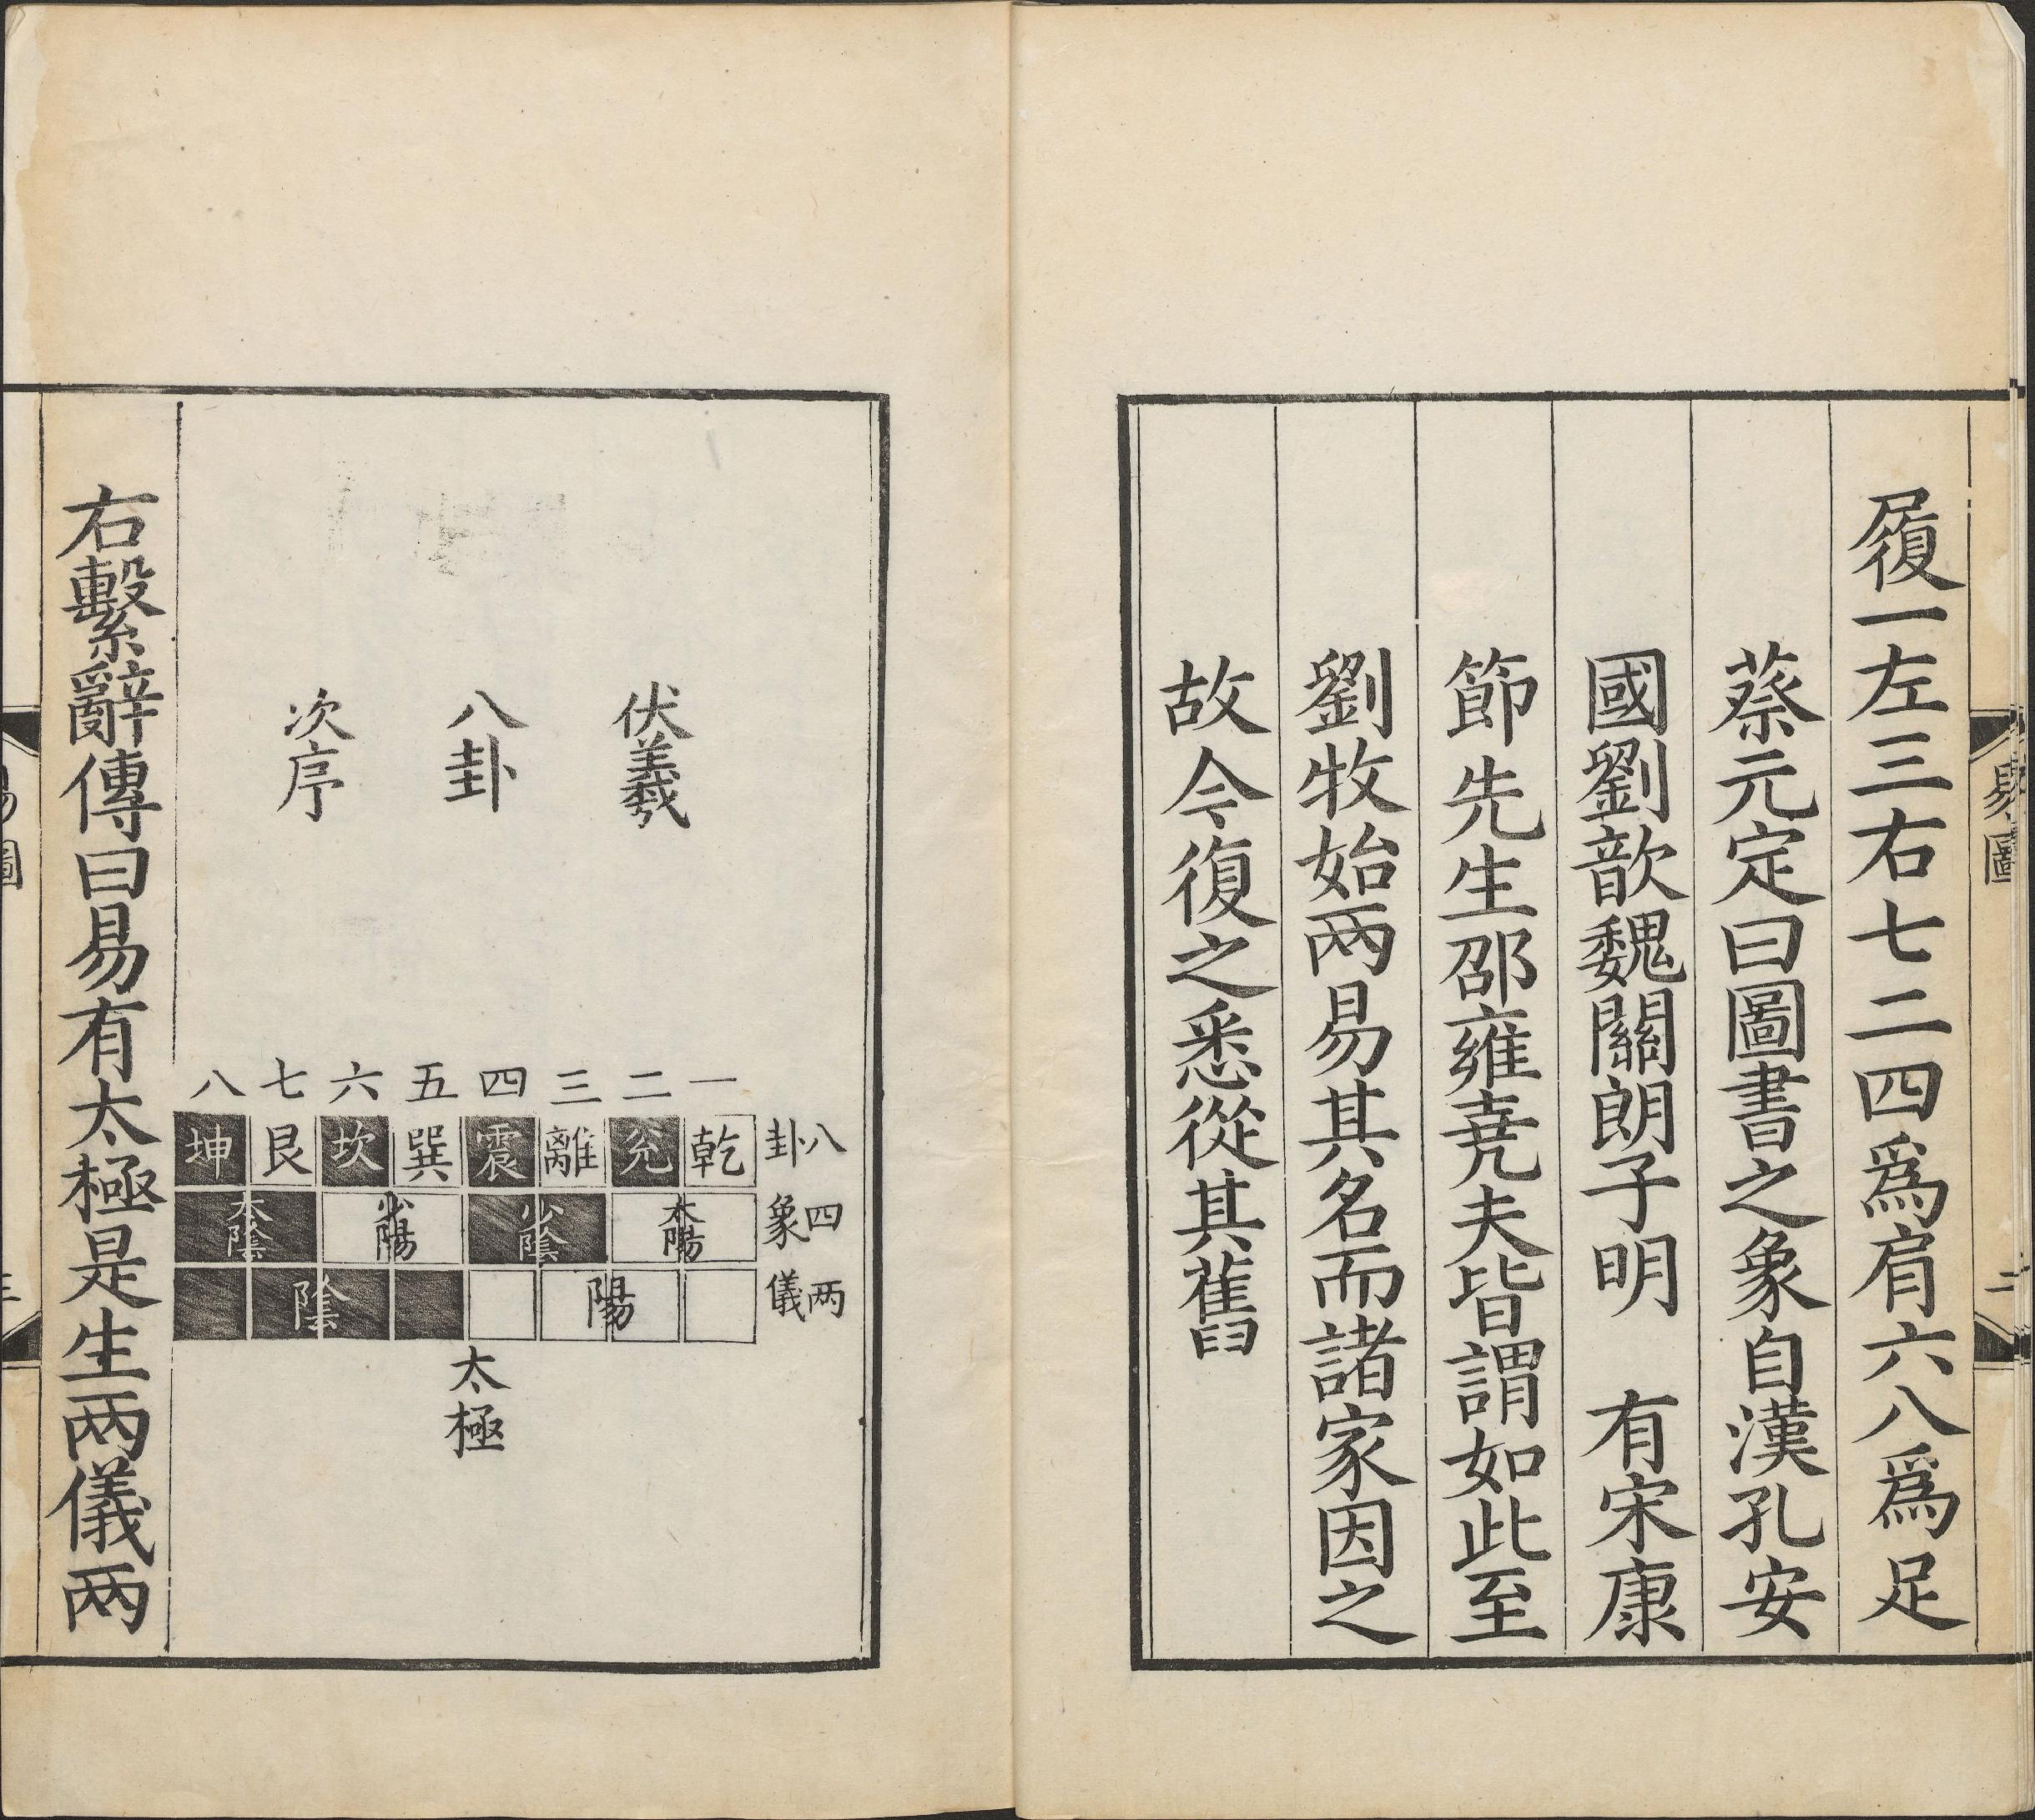 易圖
二
履一左三右七二四爲肩六八爲足
蔡元定曰圖書之象自漢孔安
國劉歆魏關朗子明　有宋康
節先生邵雍堯夫皆謂如此至
劉牧始兩易其名而諸家因之
故今復之悉從其舊
伏羲
八卦
次序
一 二 三 四 五 六 七 八
八卦
乾 兊 離 震 巽 坎 艮 坤
四象
太陽 少陰 少陽 太陰
两儀
陽 陰
太極
右繫辭傳曰易有太極是生两儀两
易圖
三